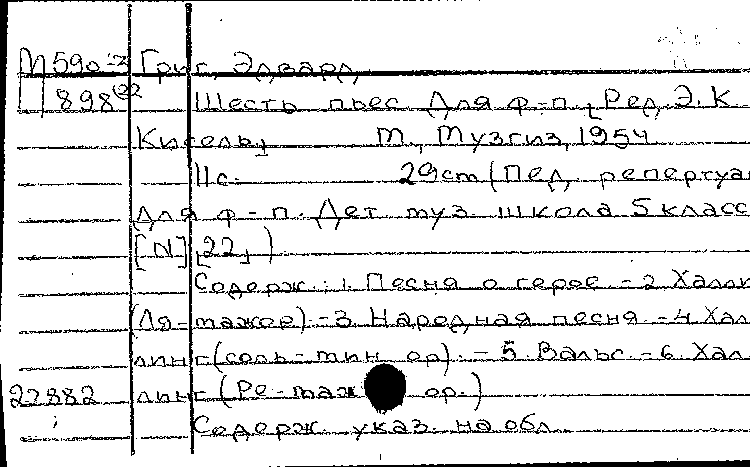 М590-3 Григ, Эдвард
898(22 Шесть пьес для ф-п. [Ред. Э. К
Кисель] М., Музгиз, 1954
11с. 29cm (Пед. репертуа
для ф-п. Дет. муз. школа 5 класс
[N] [22] )
Содерж.: 1. Песня о герое - 2 Халли
(Ля-мажор) - 3. Народная песня - 4 Хал
линг (соль-мин ор). - 5. Вальс. - 6. Хал
22882 линг (Ре-маж ор.)
Содерж. указ. на обл.